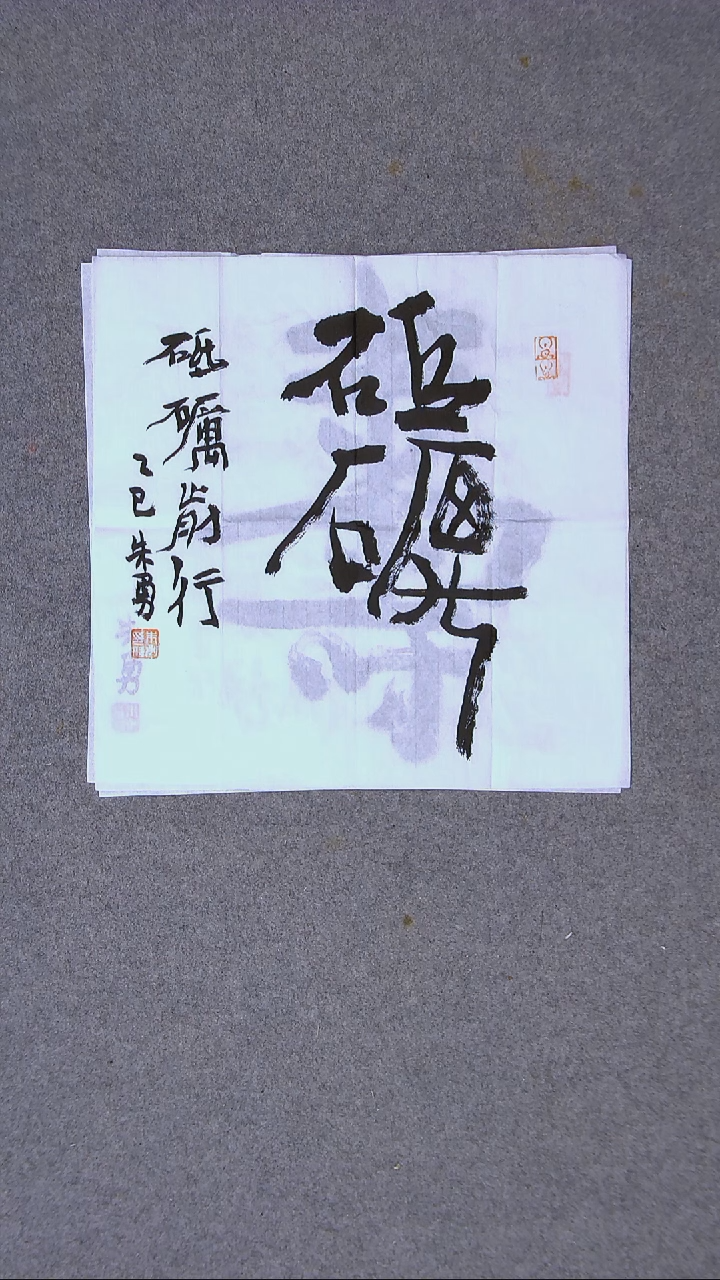 砥礪
砥礪前行
乙巳 朱勇